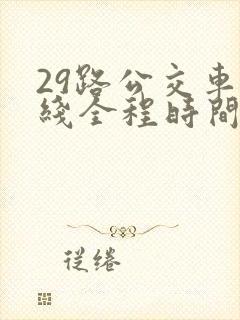 29路公交車
綫全程時間
從綣